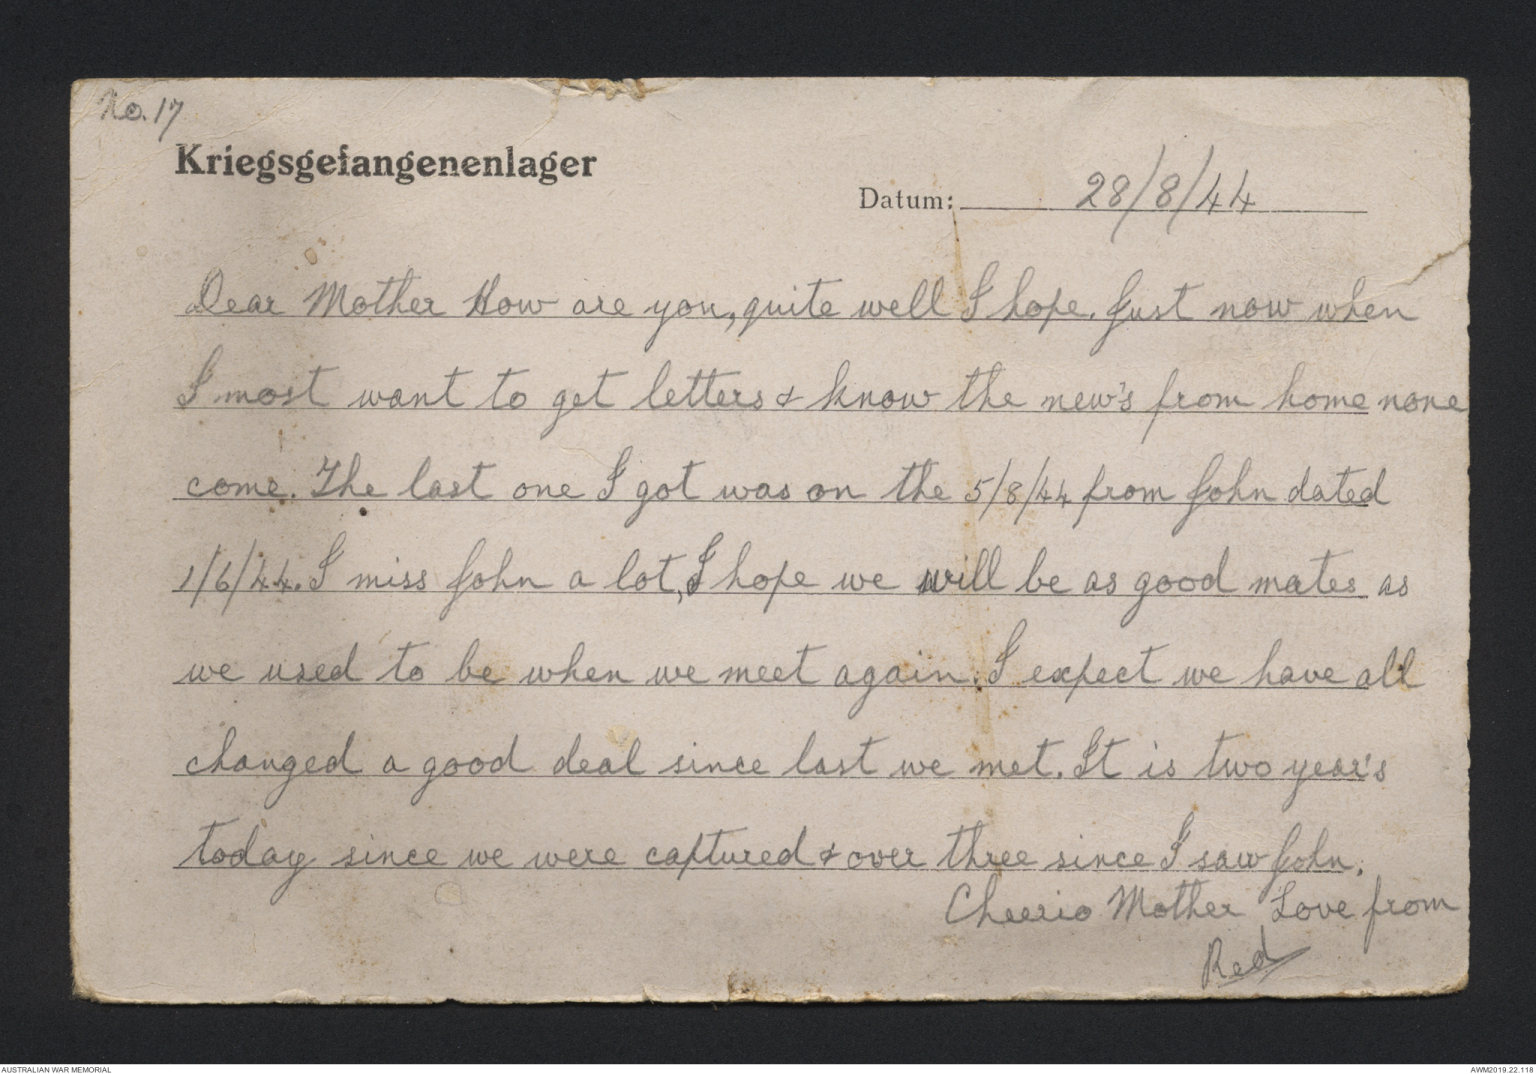 No. 17
Kriegsgefangenenlager
Datum: 28/8/44
Dear Mother How are you, quite well I hope. Just now when
I most want to get letters & know the new's from home none
come. The last one I got was on the 5/8/44 from John dated
1/6/44. I miss John a lot, I hope we will be as good mates as
we used to be when we meet again. I expect we have all
changed a good deal since last we met. It is two year's
today since we were captured & over three since I saw John.
Cheerio Mother Love from
Red
AUSTRALIAN WAR MEMORIAL
AWM2019.22.118